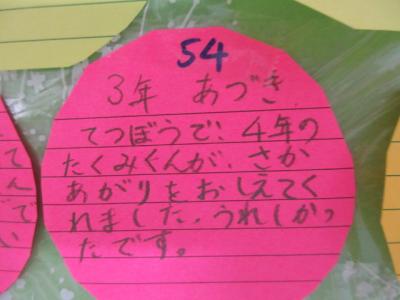 54
3年 あづき
てつぼうで、4年の
たくみくんが、さか
あがりをおしえてく
れました。うれしかっ
たです。